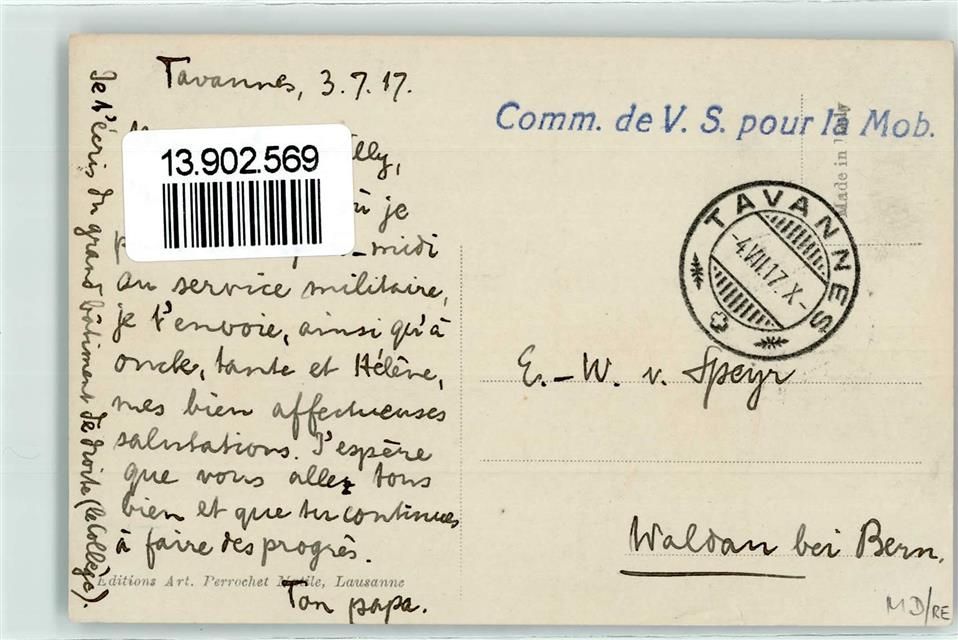 Tavannes, 3.7.17.
lly,
où je
p -midi
au service militaire,
je t'envoie, ainsi qu'à
oncle, tante et Hélène,
mes bien affectueuses
salutations. J'espère
que vous allez tous
bien et que tu continues
à faire des progrès.
Ton papa.
Je t'écris du grand bâtiment de droite (le Collège).
13.902.569
Editions Art. Perrochet Matile, Lausanne
Comm. de V. S. pour la Mob.
Made in Italy
TAVANNES
-4.VII.17.X-
E.-W. v. Speyr
Waldau bei Bern.
MD/RE